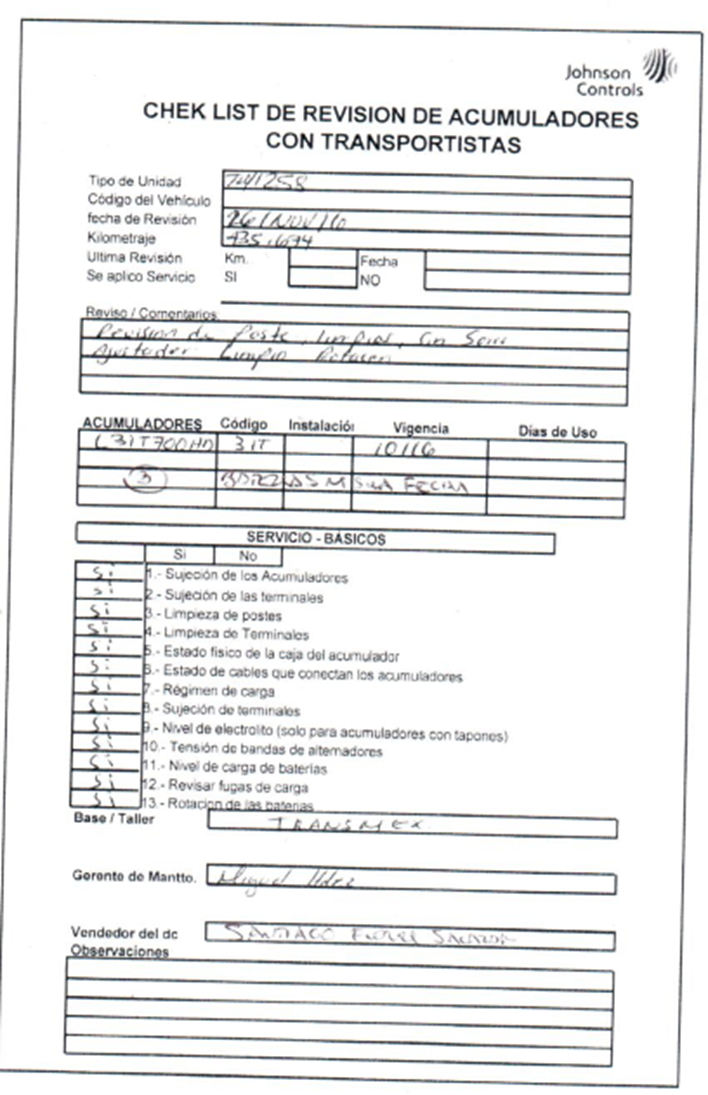 Johnson
Controls
CHEK LIST DE REVISION DE ACUMULADORES
CON TRANSPORTISTAS
Tipo de Unidad 741258
Código del Vehículo
fecha de Revisión 26/NOV/16
Kilometraje
Ultima Revisión Km. Fecha
Se aplico Servicio SI NO
Reviso / Comentarios:
Revision de Poste, limpios, Sin
Limpio
ACUMULADORES Código Instalación Vigencia Días de Uso
L31T700HD 31T 10/16
3 MISMA FECHA
SERVICIO - BÁSICOS
Si No
Si 1.- Sujeción de los Acumuladores
Si 2.- Sujeción de las terminales
Si 3.- Limpieza de postes
Si 4.- Limpieza de Terminales
Si 5.- Estado fisico de la caja del acumulador
Si 6.- Estado de cables que conectan los acumuladores
Si 7.- Régimen de carga
Si 8.- Sujeción de terminales
Si 9.- Nivel de electrolito (solo para acumuladores con tapones)
Si 10.- Tensión de bandas de alternadores
Si 11.- Nivel de carga de baterías
Si 12.- Revisar fugas de carga
Si 13.- Rotacion de las baterias
Base / Taller TRANSMEX
Gerente de Mantto. Miguel Hdez
Vendedor del dc SANTIAGO
Observaciones